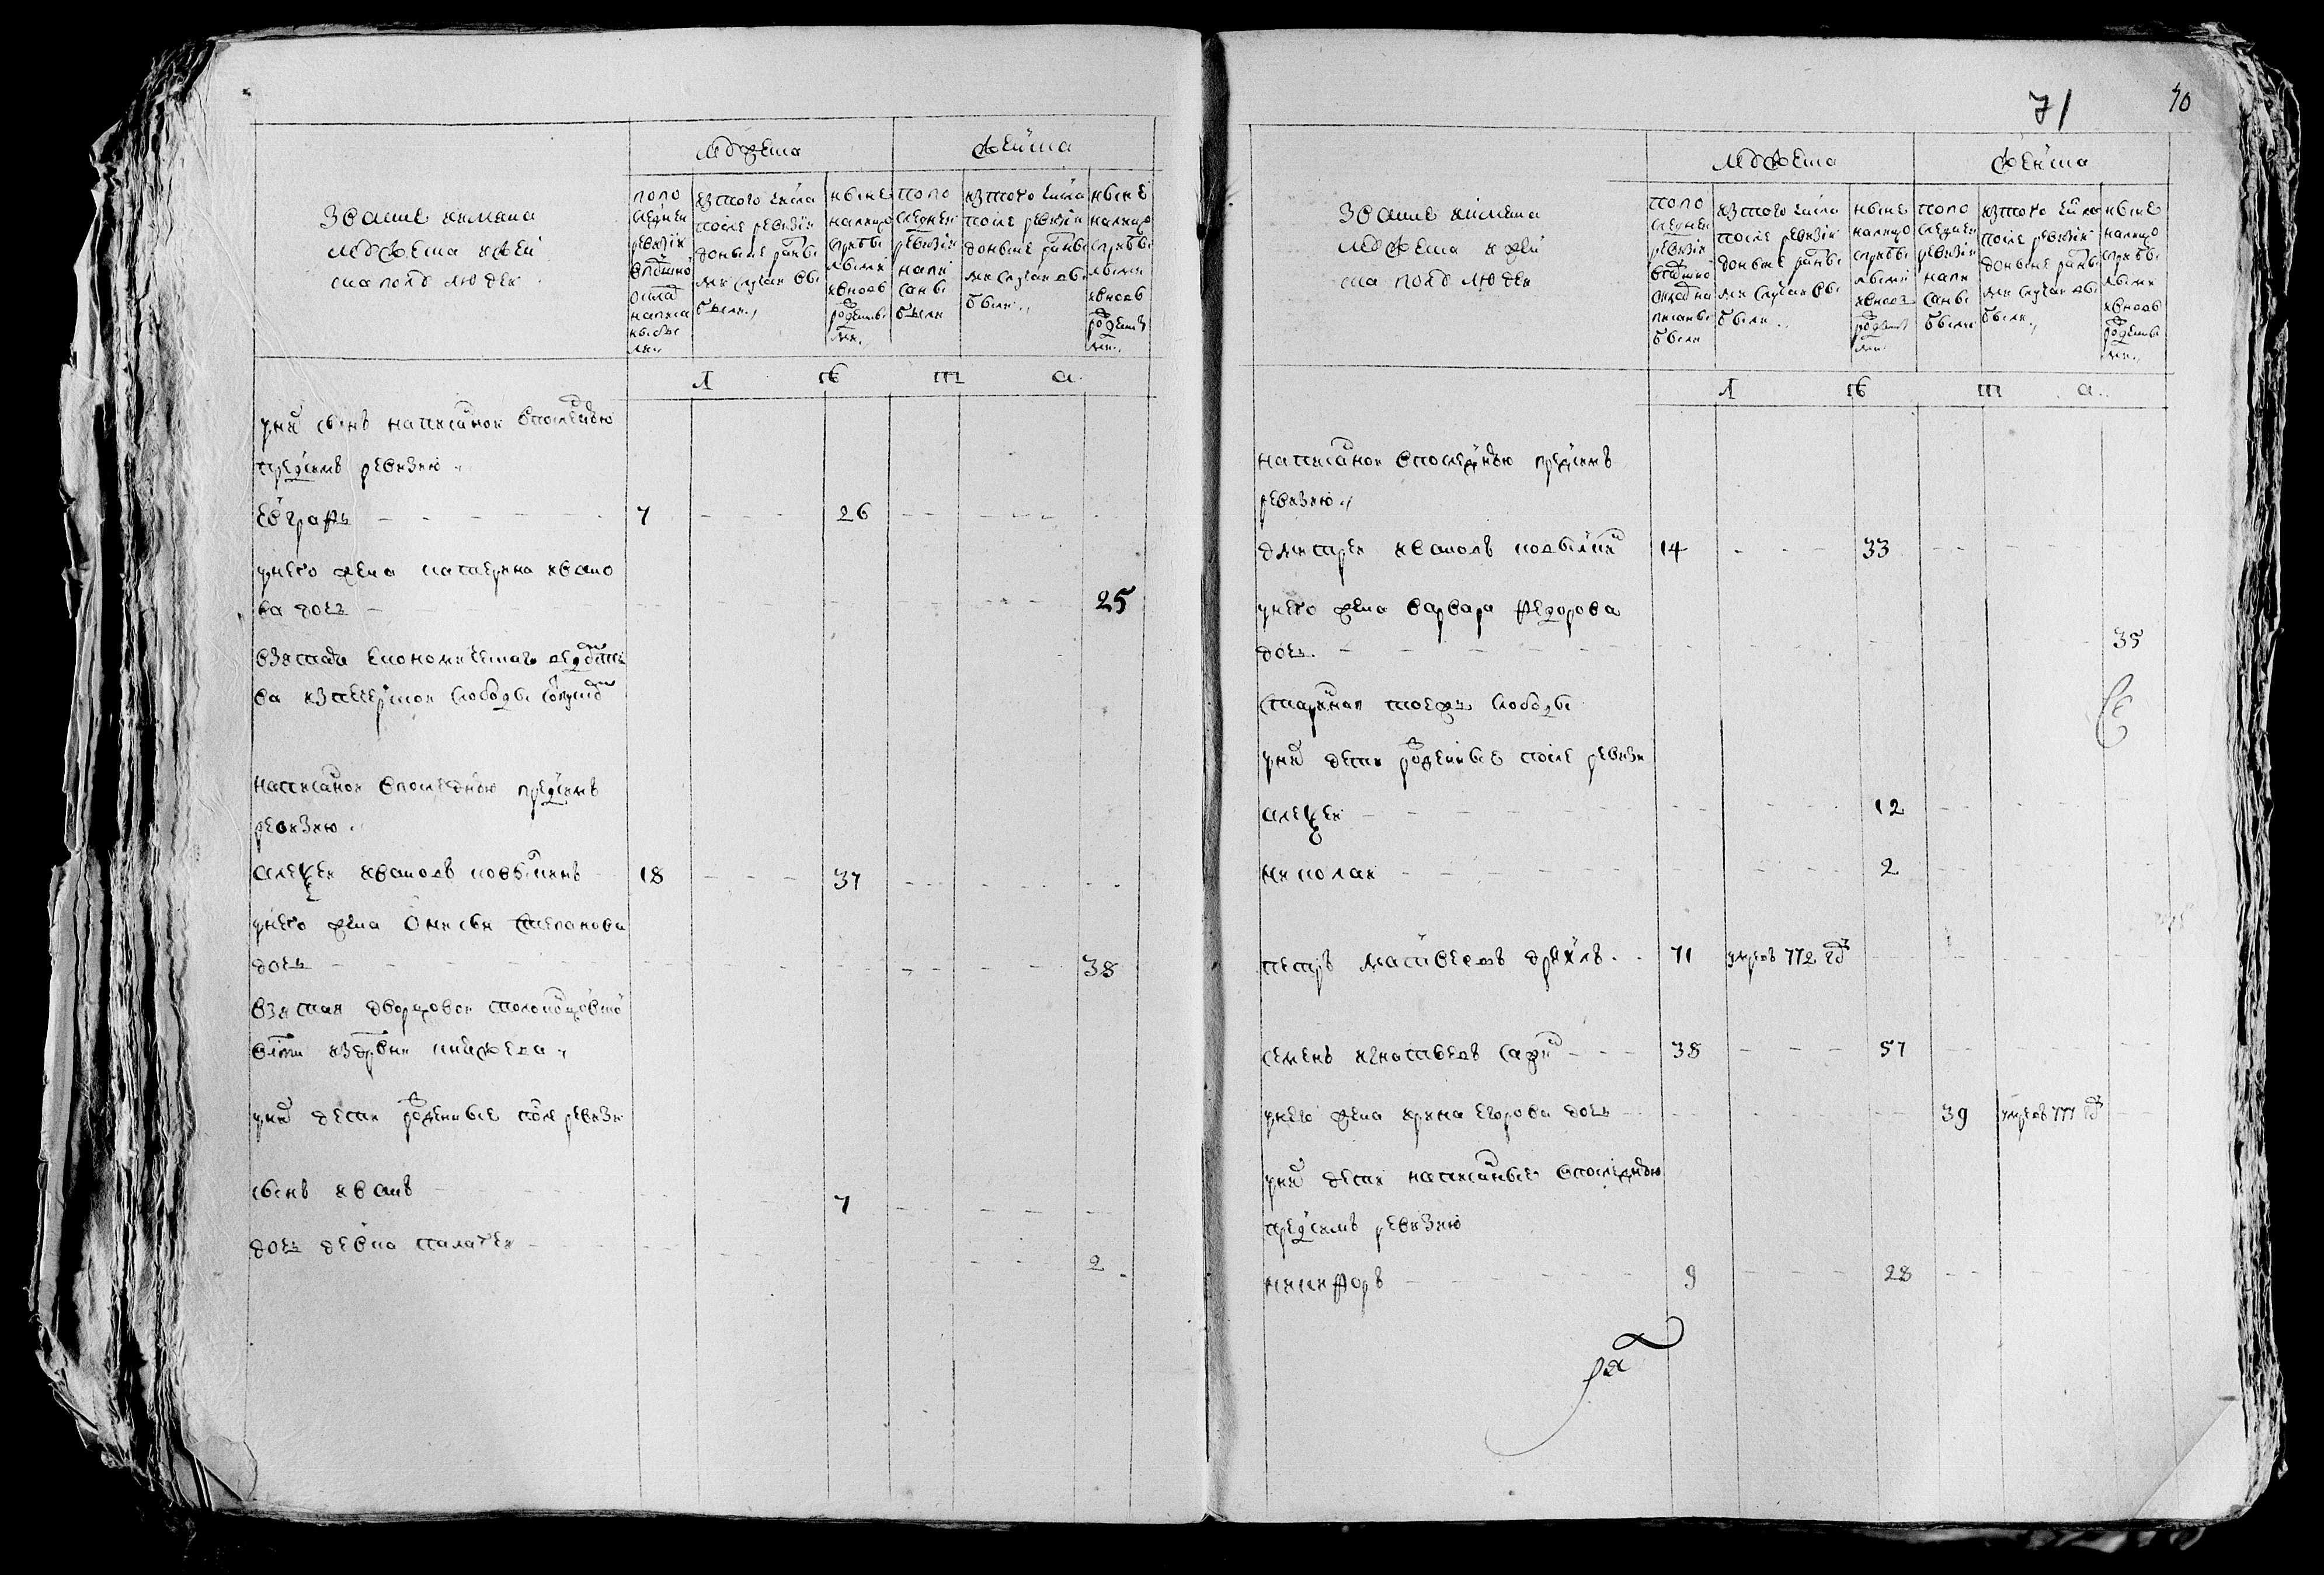 звание и имена
мужеска и жен
ска полу людей
мужеска
женска
попо
следней
ревизии
в подушной
оклад
написа
ны бы
ли
из того числа
после ревизии
до ныне разны
ми случаи вы
были
ныне
на лицо
с прибы
лыми
и вновь
рожденны
ми
попо
следней
ревизии
напи
саны
были
из того числа
после ревизии
до ныне разны
ми случаи вы
были
ныне
на лицо
с прибы
лыми
и вновь
рожденны
ми
л ѣ т а
у них сын написанной в последнюю
пред сим ревизию
Евграф 7 26
у него жена Катерина Ивано
ва дочь 25
взята экономического ведомст
ва из слободы
написанной в последнюю пред сим
ревизию
Алексей Иванов 18 37
у него жена Анисья Степанова
дочь 38
взятая дворцовой
волости из деревни
у них дети рожденные после ревизии
сын Иван 7
дочь девка Пелагея 2
71
70
звание и имена
мужеска и жен
ска полу людей
мужеска
женска
попо
следней
ревизии
в подушной
оклад на
писаны
были
из того числа
после ревизии
до ныне разны
ми случаи вы
были
ныне
на лицо
с прибы
лыми
и вновь
рожденны
ми
попо
следней
ревизии
напи
саны
были
из того числа
после ревизии
до ныне разны
ми случаи вы
были
ныне
на лицо
с прибы
лыми
и вновь
рожденны
ми
л ѣ т а
написанной в последнюю пред сим
ревизию
Дмитрей Иванов 14 33
у него жена Варвара Федорова
дочь 35
старинная тоеж слободы
у них дети рожденные после ревизи
Алексей 12
Николай 2
Петр Матвеев 71 умре в 772 году
Семен Игнатьев 38 57
у него жена Ирина Егорова дочь 39 умре в 777 году
у них дети написанные в последнюю
пред сим ревизию
Никифор 9 28